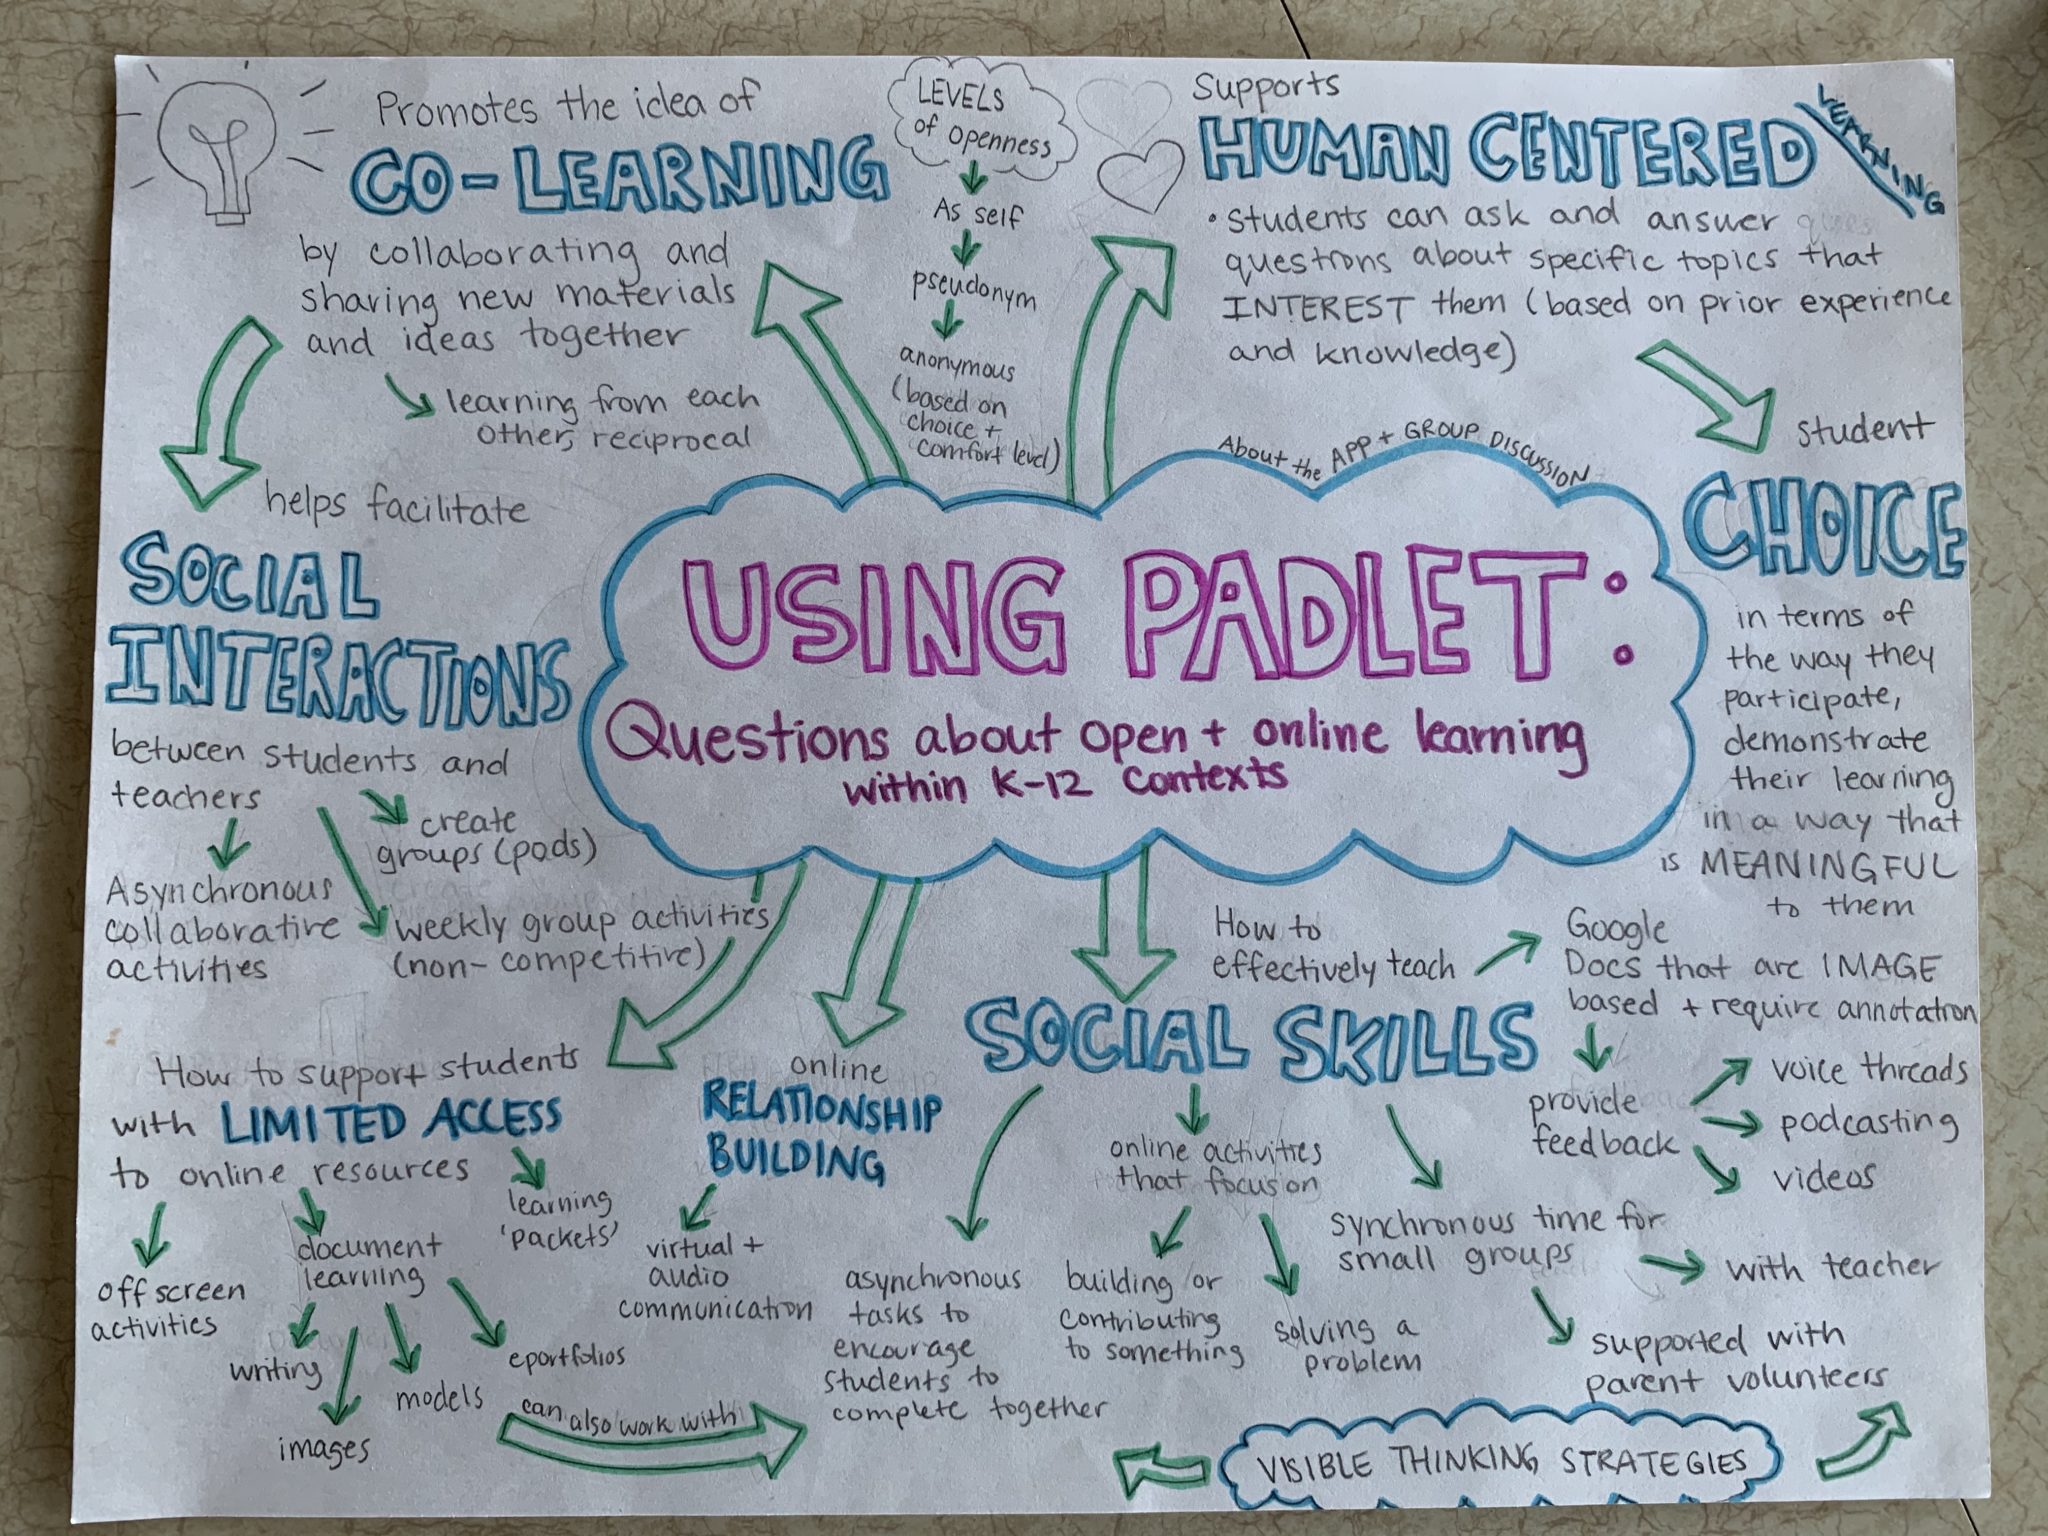 Promotes the idea of
CO-LEARNING
by collaborating and
sharing new materials
and ideas together
learning from each
other, reciprocal
LEVELS
of openness
As self
pseudonym
anonymous
(based on
choice +
comfort level)
Supports
HUMAN CENTERED
LEARNING
• Students can ask and answer
questions about specific topics that
INTEREST them (based on prior experience
and knowledge)
student
CHOICE
in terms of
the way they
participate,
demonstrate
their learning
in a way that
is MEANINGFUL
to them
About the APP + GROUP DISCUSSION
USING PADLET:
Questions about open + online learning
within K-12 contexts
helps facilitate
SOCIAL
INTERACTIONS
between students and
teachers
create
groups (pods)
Asynchronous
collaborative
activities
weekly group activities
(non-competitive)
How to support students
with LIMITED ACCESS
to online resources
off screen
activities
document
learning
learning
'packets'
writing
images
models
eportfolios
can also work with
online
RELATIONSHIP
BUILDING
virtual +
audio
communication
How to
effectively teach
SOCIAL SKILLS
asynchronous
tasks to
encourage
students to
complete together
online activities
that focus on
building or
contributing
to something
solving a
problem
synchronous time for
small groups
with teacher
supported with
parent volunteers
Google
Docs that are IMAGE
based + require annotation
provide
feedback
voice threads
podcasting
videos
VISIBLE THINKING STRATEGIES